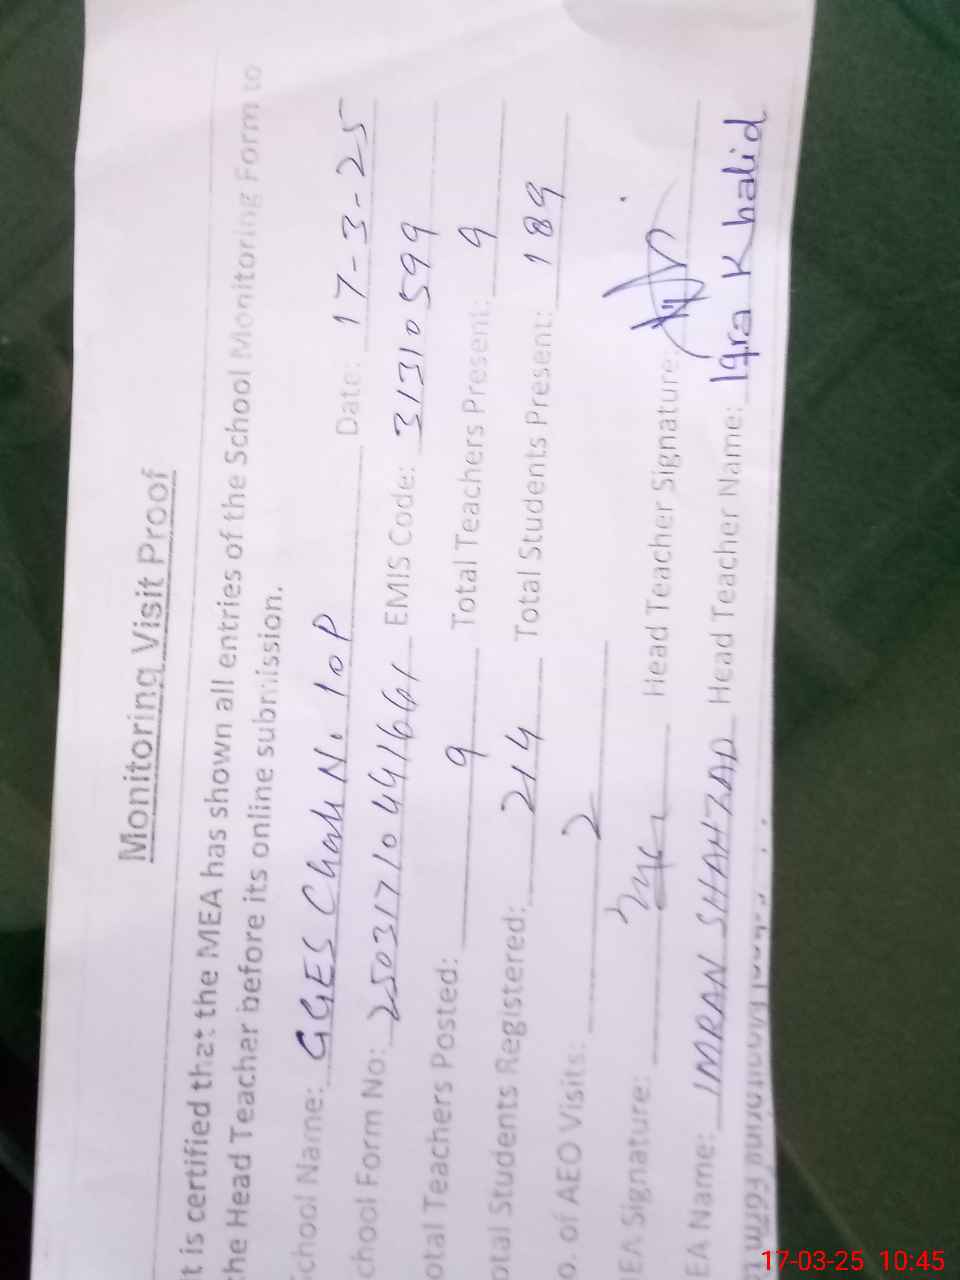 Monitoring Visit Proof
t is certified that the MEA has shown all entries of the School Monitoring Form to
the Head Teacher before its online submission.
School Name: GGES Chak No. 10P Date: 17-3-25
chool Form No: EMIS Code: 31310599
otal Teachers Posted: 9 Total Teachers Present: 9
otal Students Registered: 214 Total Students Present: 189
o. of AEO Visits: 2
EA Signature: Head Teacher Signature:
EA Name: IMRAN SHAHZAD Head Teacher Name: Iqra Khalid
17-03-25 10:45